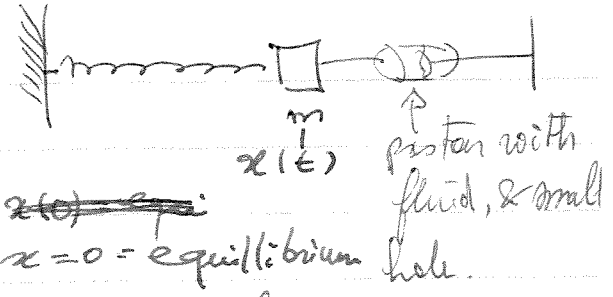 m
x(t)
piston with
fluid, & small
hole.
x = 0 = equillibrium